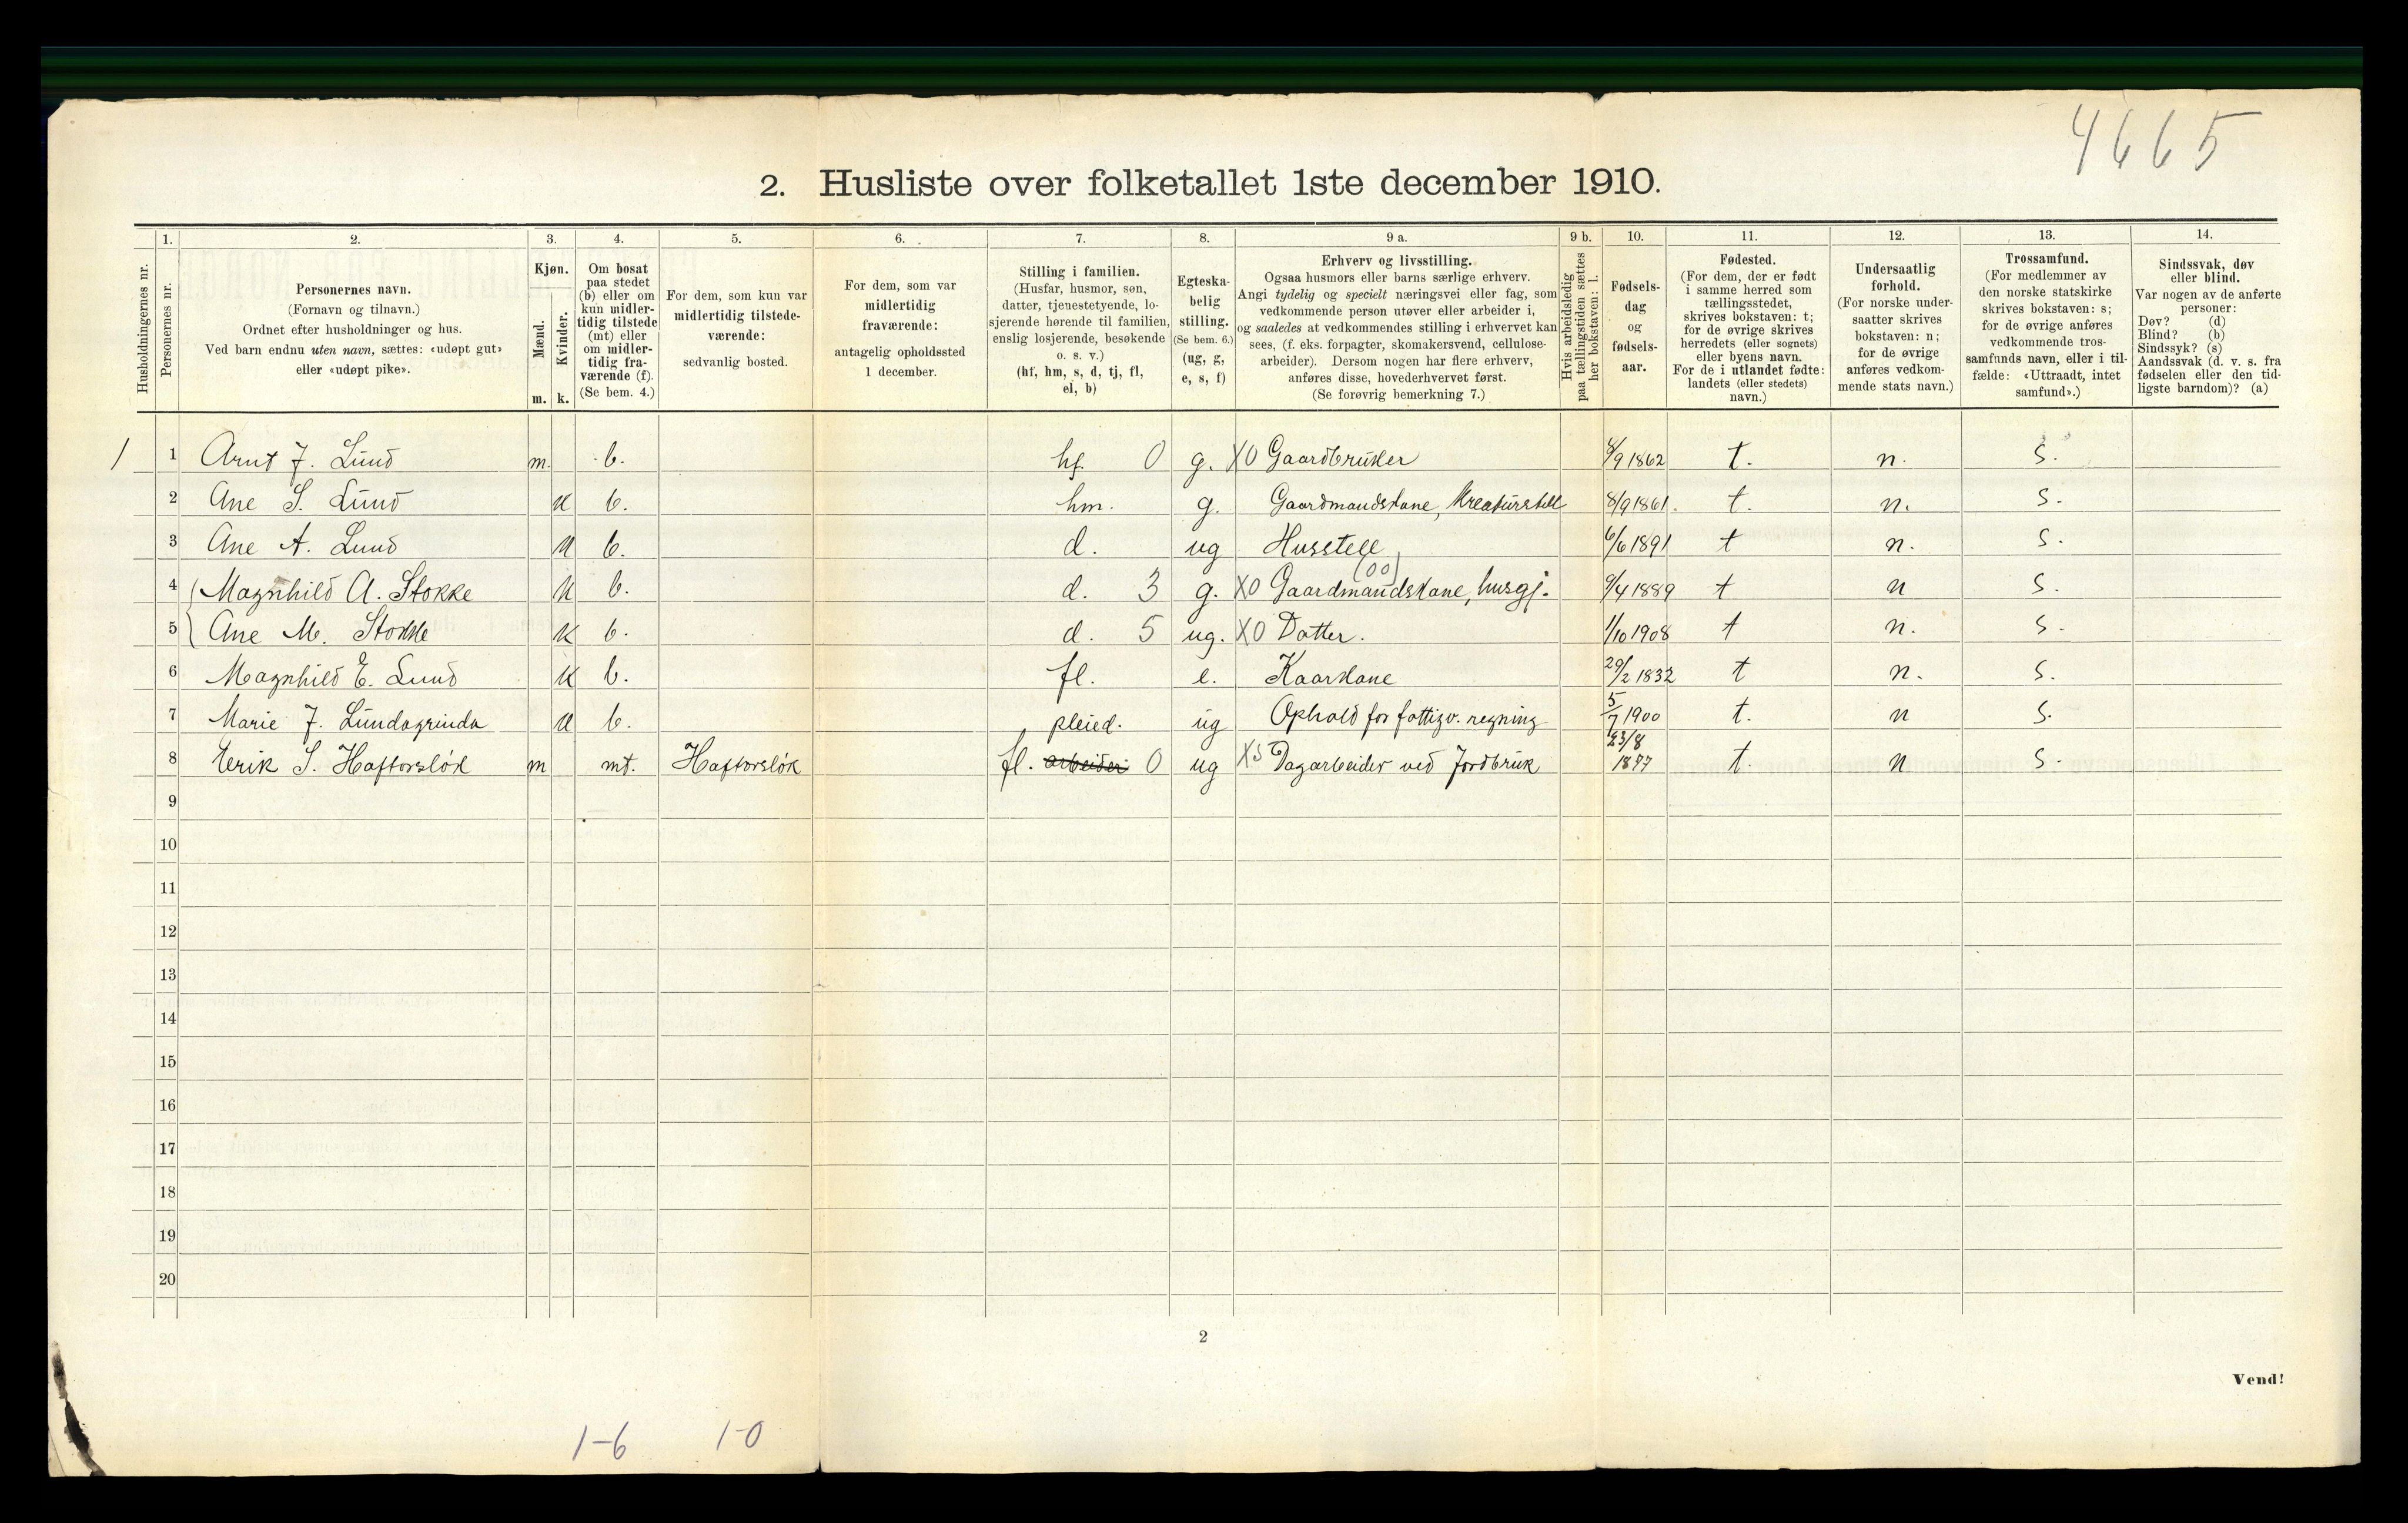 4665
2. Husliste over folketallet 1ste december 1910.
Husholdningernes nr.
1.
Personernes nr.
2.
Personernes navn.
(Fornavn og tilnavn.)
Ordnet efter husholdninger og hus.
Ved barn endnu uten navn, sættes: «udøpt gut»
eller «udøpt pike».
3.
Kjøn.
Mænd.
Kvinder.
m. k.
4.
Om bosat
paa stedet
(b) eller om
kun midler-
tidig tilstede
(mt) eller
om midler-
tidig fra-
værende (f).
(Se bem. 4.)
5.
For dem, som kun var
midlertidig tilstede-
værende:
sedvanlig bosted.
6.
For dem, som var
midlertidig
fraværende:
antagelig opholdssted
1 december.
7.
Stilling i familien.
(Husfar, husmor, søn,
datter, tjenestetyende, lo-
sjerende hørende til familien,
enslig losjerende, besøkende
o. s. v.)
(hf, hm, s, d, tj, fl,
el, b)
8.
Egteska-
belig
stilling.
(Se bem. 6.)
(ug, g,
e, s, f)
9 a.
Erhverv og livsstilling.
Ogsaa husmors eller barns særlige erhverv.
Angi tydelig og specielt næringsvei eller fag, som
vedkommende person utøver eller arbeider i,
og saaledes at vedkommendes stilling i erhvervet kan
sees, (f. eks. forpagter, skomakersvend, cellulose-
arbeider). Dersom nogen har flere erhverv,
anføres disse, hovederhvervet først.
(Se forøvrig bemerkning 7.)
9 b.
Hvis arbeidsledig
paa tællingstiden sættes
her bokstaven: l.
10.
Fødsels-
dag
og
fødsels-
aar.
11.
Fødested.
(For dem, der er født
i samme herred som
tællingsstedet,
skrives bokstaven: t;
for de øvrige skrives
herredets (eller sognets)
eller byens navn.
For de i utlandet fødte:
landets (eller stedets)
navn.)
12.
Undersaatlig
forhold.
(For norske under-
saatter skrives
bokstaven: n;
for de øvrige
anføres vedkom-
mende stats navn.)
13.
Trossamfund.
(For medlemmer av
den norske statskirke
skrives bokstaven: s;
for de øvrige anføres
vedkommende tros-
samfunds navn, eller i til-
fælde: «Uttraadt, intet
samfund».)
14.
Sindssvak, døv
eller blind.
Var nogen av de anførte
personer:
Døv? (d)
Blind? (b)
Sindssyk? (s)
Aandssvak (d. v. s. fra
fødselen eller den tid-
ligste barndom)? (a)
1 1 Arnt J. Lund m. b. hf. 0 g. X0 Gaardbruker /9 1862 t. n. s.
2 Ane S. Lund k b. hm. g. Gaardmandskone, Kreaturstell 8/9 1861. t. n. s.
3 Ane A. Lund k b. d. ug Husstell 6/6 1891 t n. s.
(00)
4 Magnhild A. Stokke k b. d. 3 g. X0 Gaardmandskone, husgj. 9/4 1889 t n s.
5 Ane M. Stokke k b. d. 5 ug. X0 Datter. 1/10 1908 t n. s.
6 Magnhild E. Lund k b. fl. e. Kaarkone 29/2 1832 t n. s.
7 Marie J. Lundagrinda k b. pleied. ug Ophold for fattigv. regning 5/7 1900 t. n s.
8 Erik S. Haftorsløk m mt. Haftorsløk fl. arbeider 0 ug XS Dagarbeider ved Jordbruk 23/8 1877 t. n s.
9
10
11
12
13
14
15
16
17
18
19
20
2
Vend!
1-6 1-0